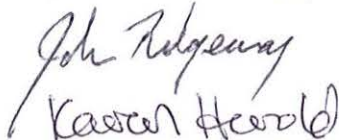 John Ridgeway
Karen Herold